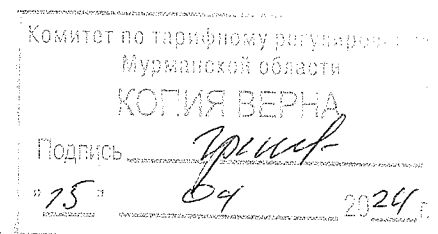 Комитет по тарифному регулирова
Мурманской области
КОПИЯ ВЕРНА
Подпись
"15" 04 2024 г.